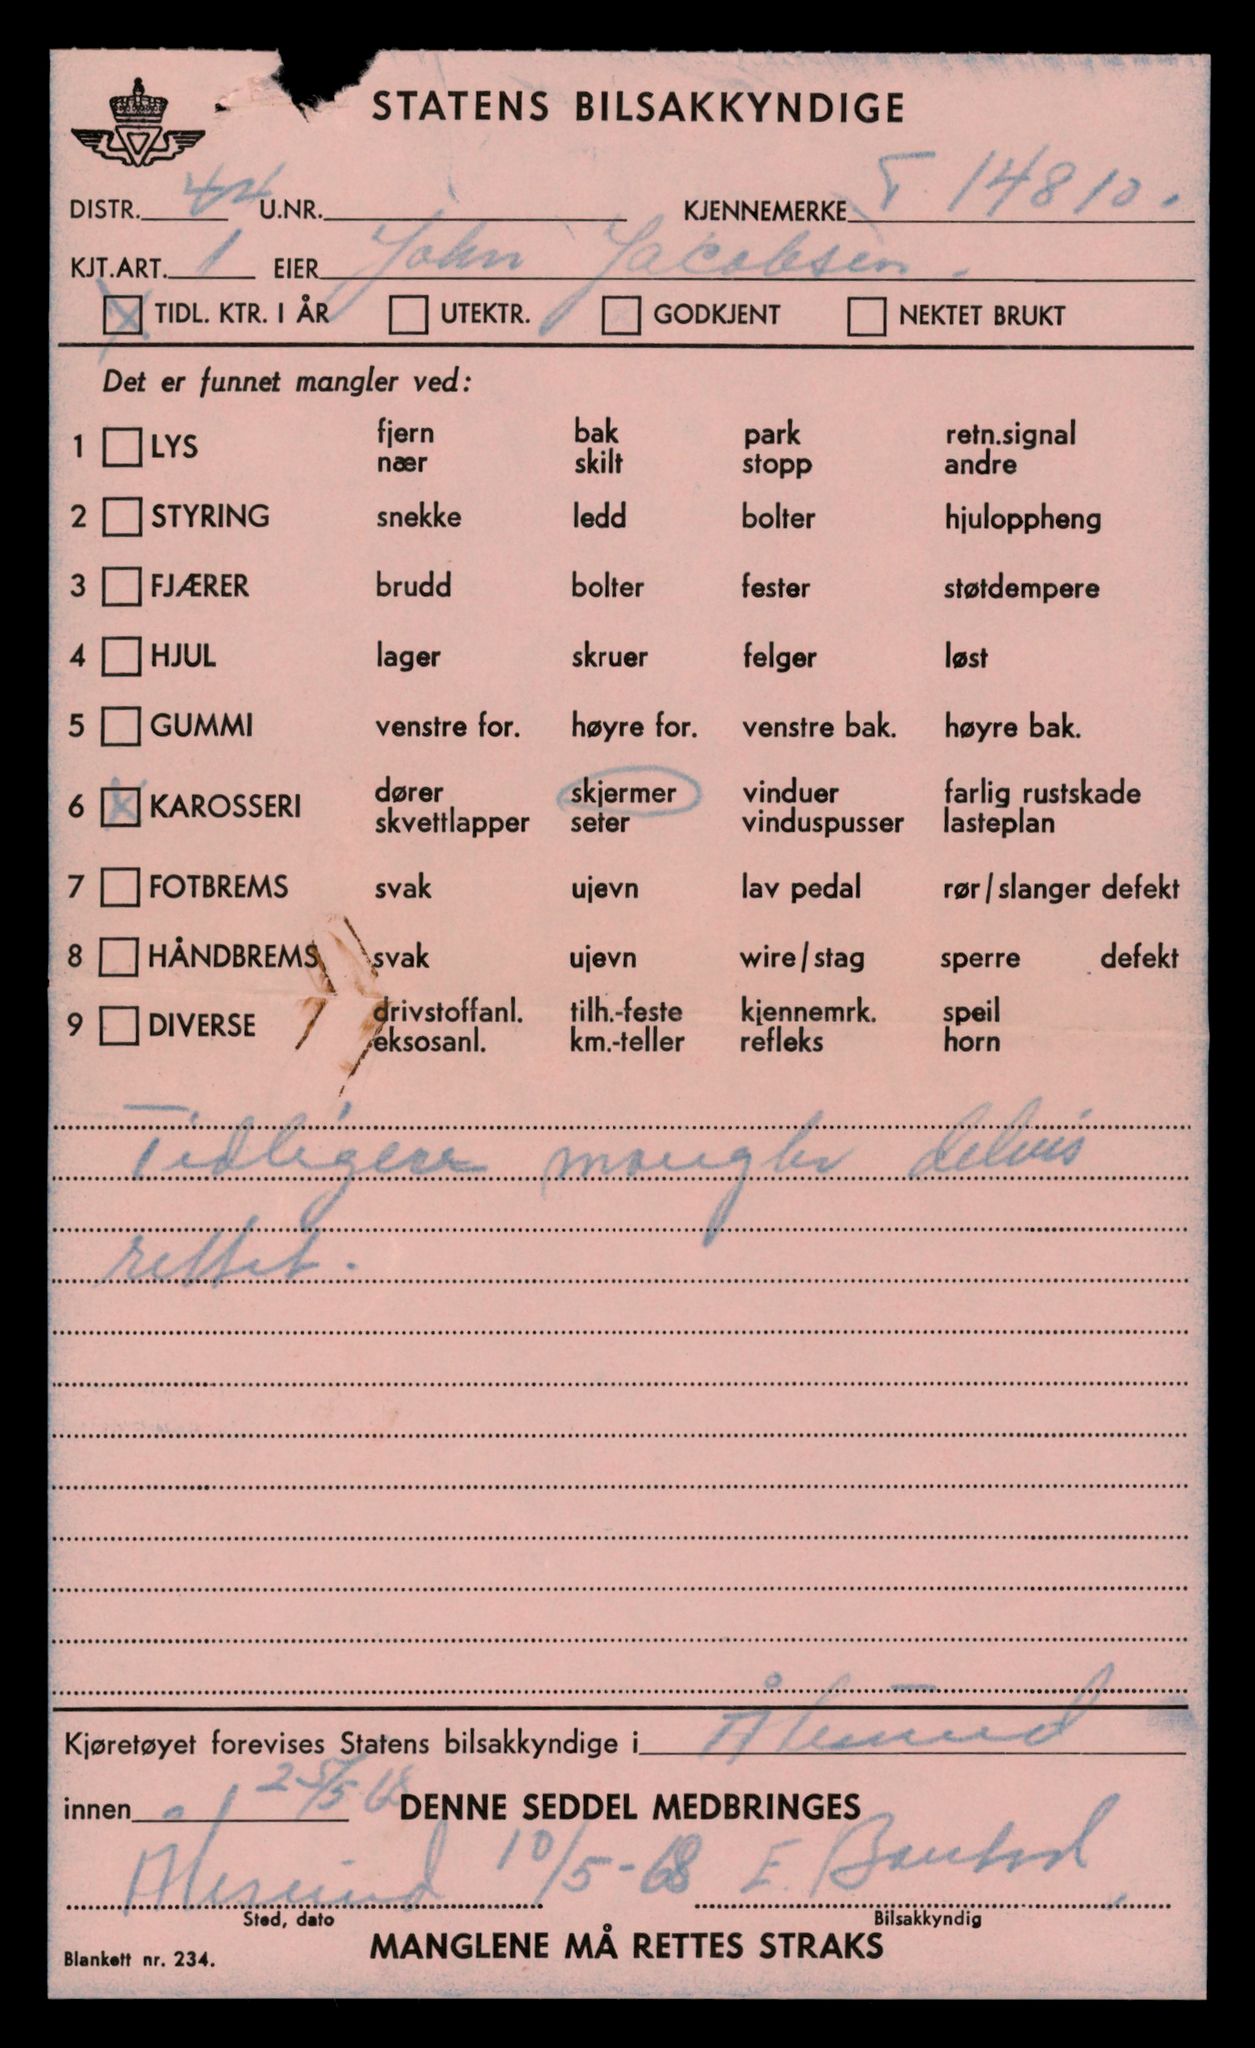 STATENS BILSAKKYNDIGE
DISTR. 44 U.NR. KJENNEMERKE T 14810.
KJT.ART. 1 EIER John Jacobsen.
X TIDL. KTR. I ÅR UTEKTR. GODKJENT NEKTET BRUKT
Det er funnet mangler ved:
1 LYS fjern bak park retn.signal
nær skilt stopp andre
2 STYRING snekke ledd bolter hjuloppheng
3 FJÆRER brudd bolter fester støtdempere
4 HJUL lager skruer felger løst
5 GUMMI venstre for. høyre for. venstre bak. høyre bak.
6 X KAROSSERI dører skjermer vinduer farlig rustskade
skvettlapper seter vinduspusser lasteplan
7 FOTBREMS svak ujevn lav pedal rør/slanger defekt
8 HÅNDBREMS svak ujevn wire/stag sperre defekt
9 DIVERSE drivstoffanl. tilh.-feste kjennemrk. speil
eksosanl. km.-teller refleks horn
Tidligere mangler delvis
rettet.
Kjøretøyet forevises Statens bilsakkyndige i Ålesund
innen 25/5-68 DENNE SEDDEL MEDBRINGES
Ålesund 10/5-68 E.
Sted, dato Bilsakkyndig
Blankett nr. 234. MANGLENE MÅ RETTES STRAKS